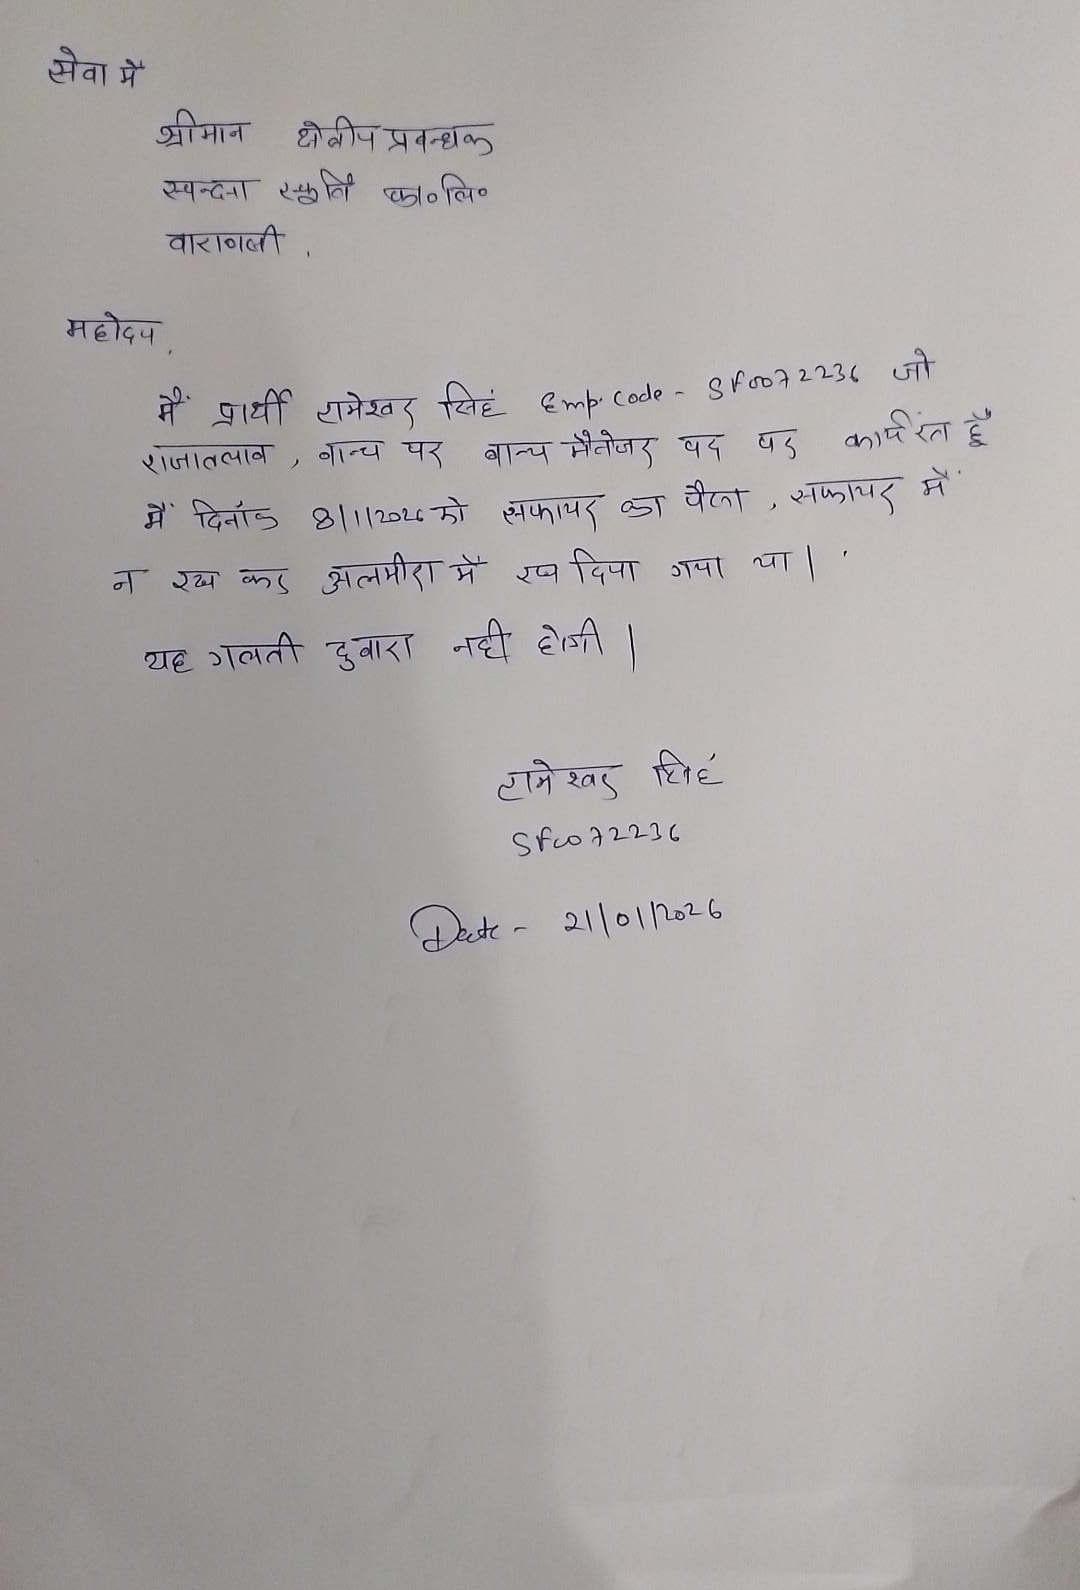 सेवा में
श्रीमान क्षेत्रीय प्रबन्धक
स्पन्दना स्फूर्ति फा॰लि॰
वाराणसी ,
महोदय,
मैं प्रार्थी रामेश्वर सिंह Emp. Code - SF0072236 जो
राजातलाब , ब्रान्च पर ब्रान्च मैनेजर पद पर कार्यरत हूँ
मैं दिनांक 8/1/2026 को सफायर का पैसा , सफायर में
न रख कर अलमीरा में रख दिया गया था |
यह गलती दुबारा नही होगी |
रामेश्वर सिंह
SF0072236
Date - 21/01/2026